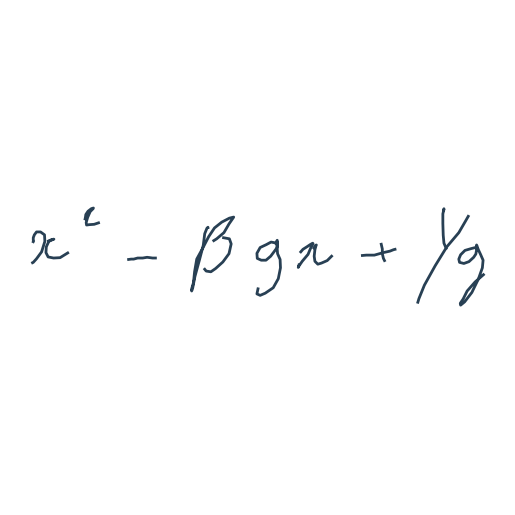 x² - β g x + γ g